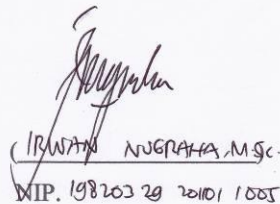 ( IRWAN NUGRAHA, M.Sc. )
NIP. 19820329 201101 1005